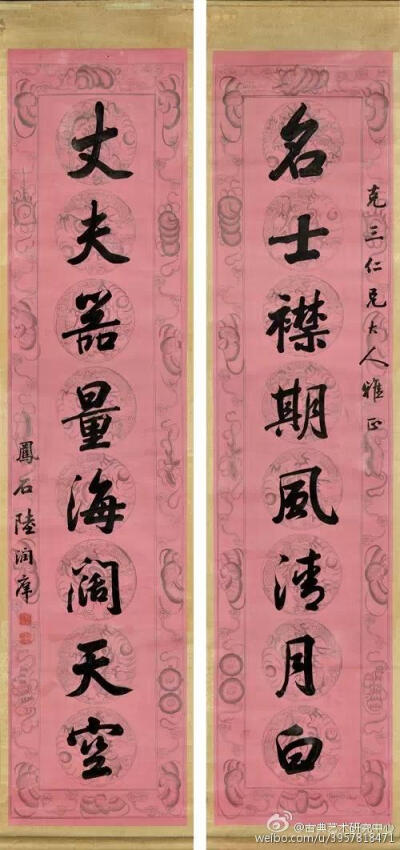 克三仁兄大人雅正
名士襟期風清月白
丈夫器量海闊天空
鳳石陸潤庠
@古典艺术研究中心
weibo.com/u/3957818471